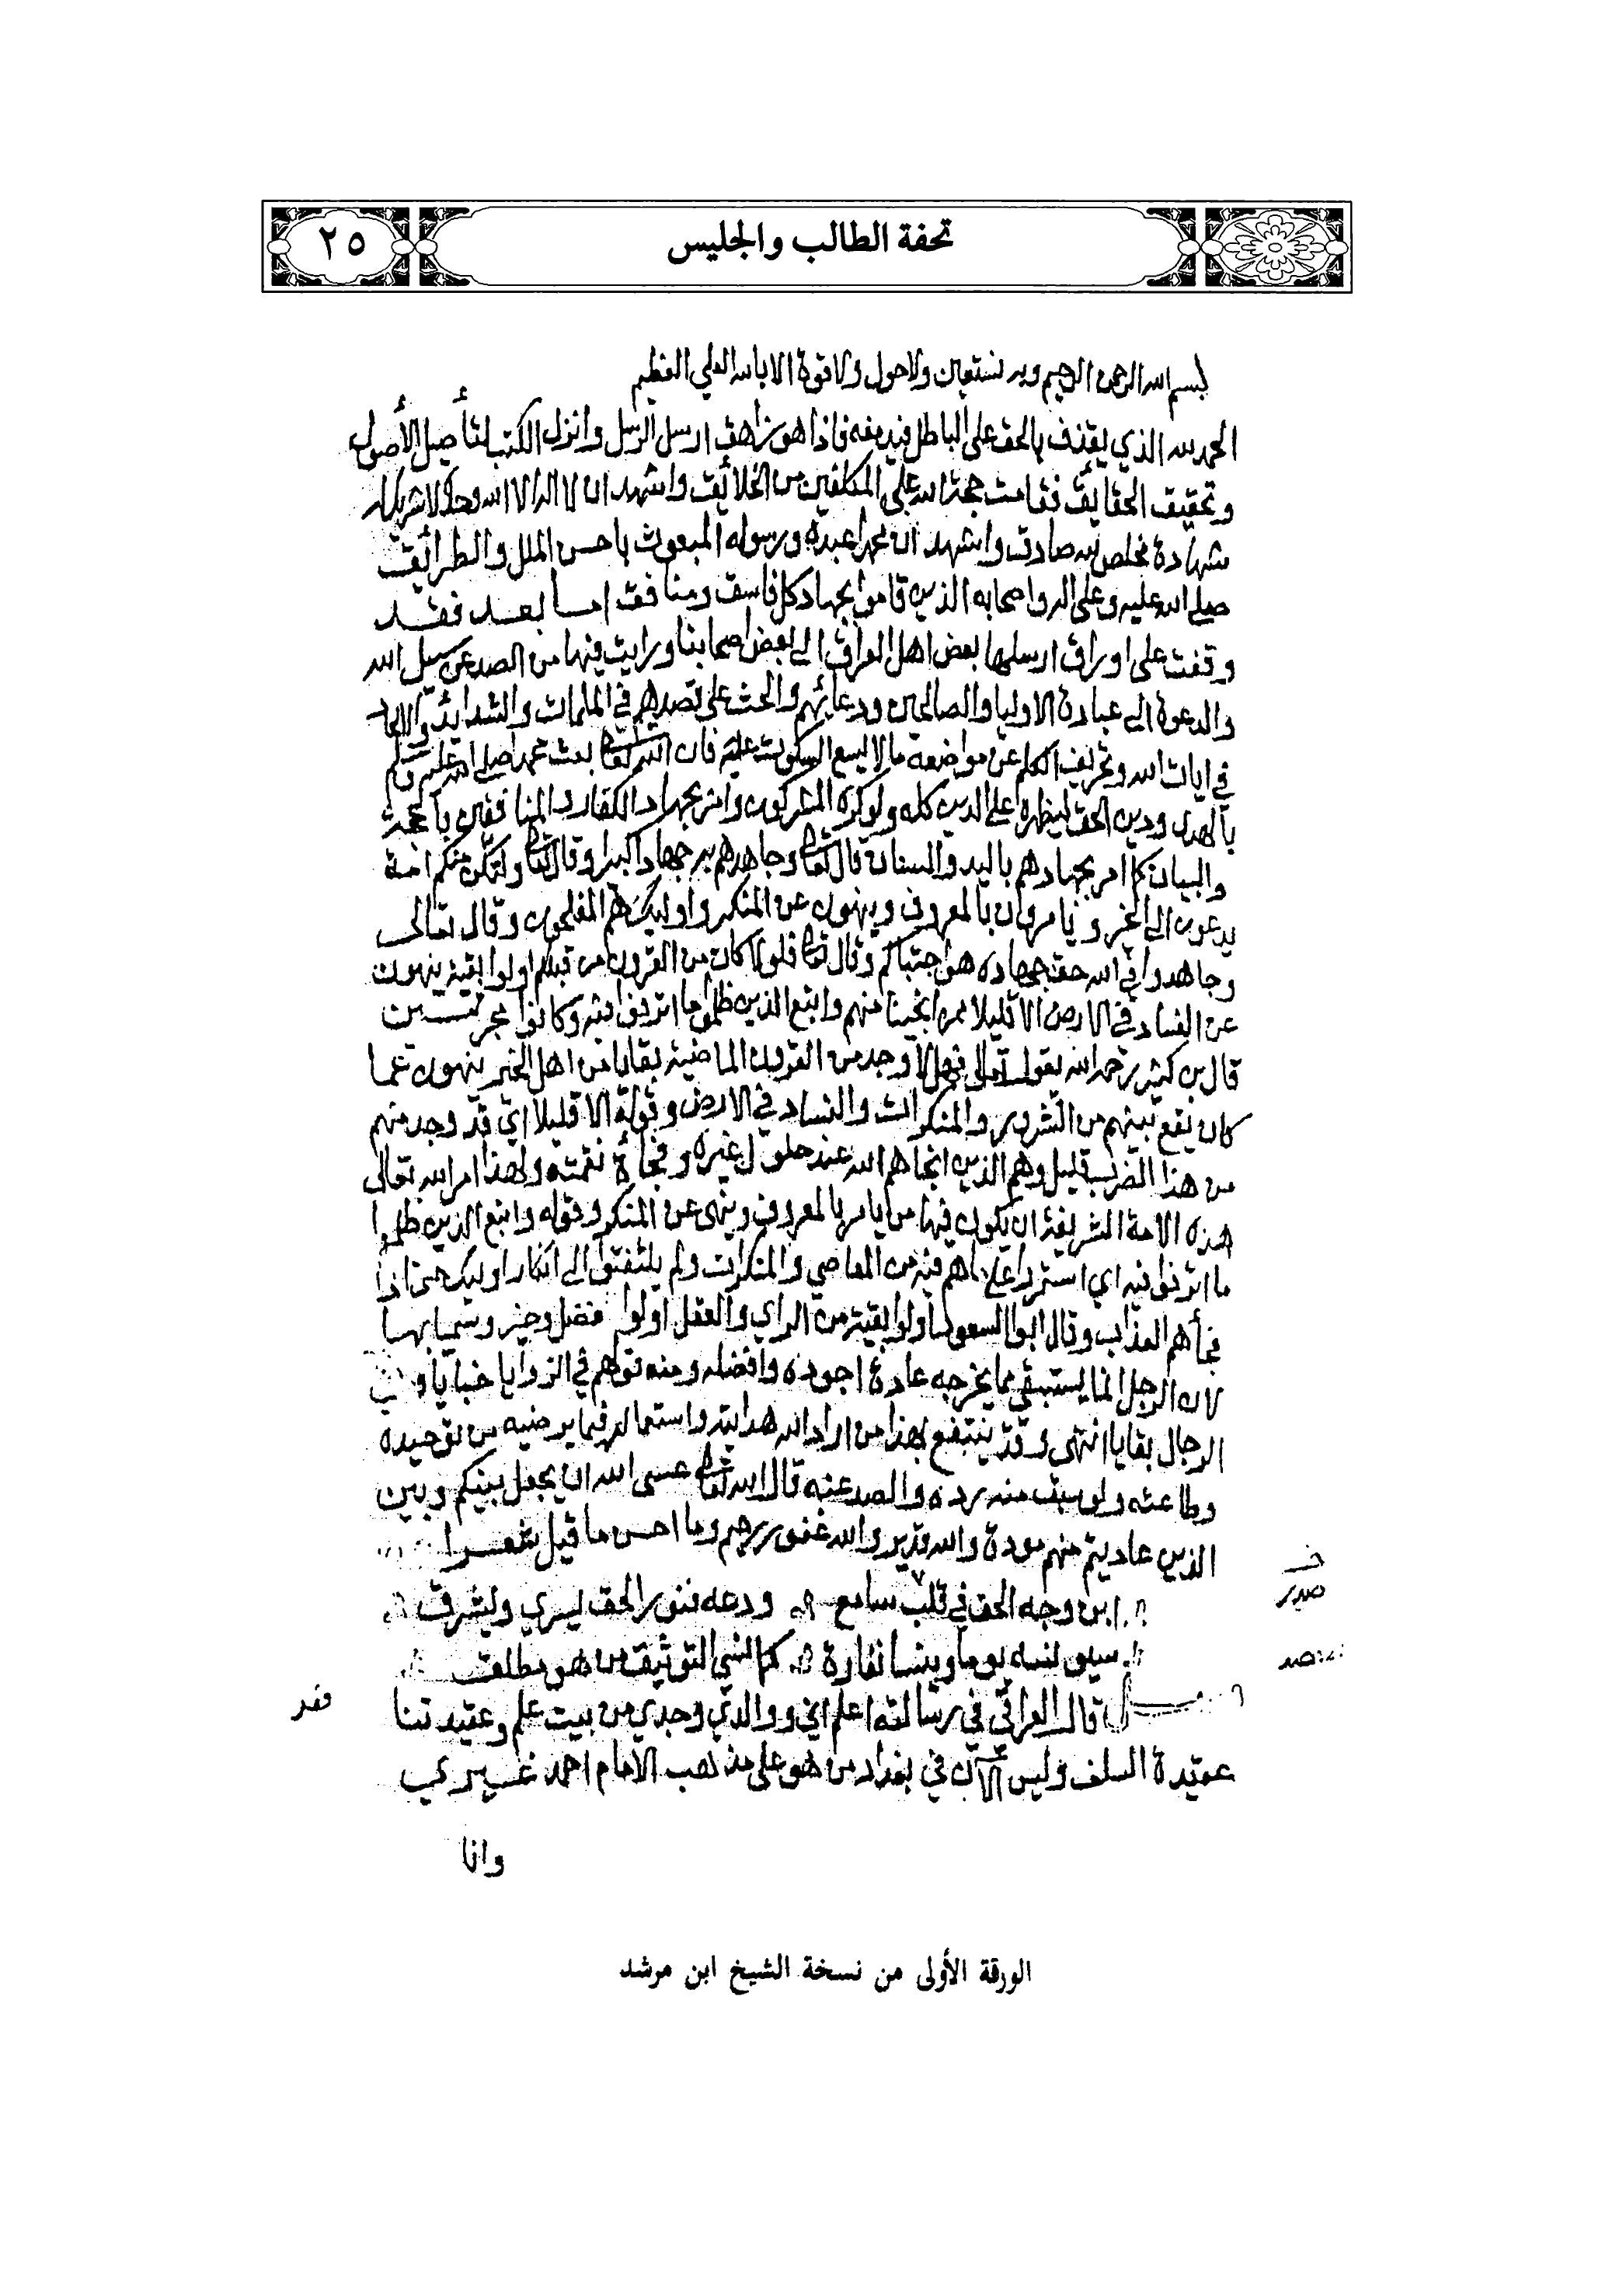 تحفة الطالب والجليس
٢٥
بسم الله الرحمن الرحيم وبه نستعين ولا حول ولا قوة الا بالله العلي العظيم
الحمد لله الذي يقذف بالحق على الباطل فيدمغه فاذا هو زاهق ارسل الرسل وانزل الكتب لتأصيل الأصول
وتحقيق الحقايق فقامت حجة الله على المكلفين من الخلائق واشهد ان لا اله الا الله وحده لا شريك له
شهادة مخلص لله صادق واشهد ان محمدا عبده ورسوله المبعوث باحسن الملل والطرائق
صلى الله عليه وعلى اله واصحابه الذين قاموا بجهاد كل فاسق ومنافق اما بعد فقد
وقفت على اوراق ارسلها بعض اهل العراق الى بعض اصحابنا ورايت فيها من الصد عن سبيل الله
والدعوة الى عبادة الاوليا والصالحين ودعائهم والحث على قصدهم في الملمات والشدايد والالحاد
في ايات الله وتحريف الكلم عن مواضعه ما لا يسع السكوت عليه فان الله تعالى بعث محمدا صلى الله عليه وسلم
بالهدى ودين الحق ليظهره على الدين كله ولو كره المشركون وامر بجهاد الكفار والمنافقين بالحجة
والبيان كما امر بجهادهم باليد والسنان قال تعالى وجاهدهم به جهادا كبيرا وقال تعالى ولتكن منكم امة
يدعون الى الخير و يامرون بالمعروف وينهون عن المنكر واوليك هم المفلحون وقال تعالى
وجاهدوا في الله حق جهاده هو اجتباكم وقال تعالى فلولا كان من القرون من قبلكم اولوا بقية ينهون
عن الفساد في الارض الا قليلا ممن انجينا منهم واتبع الذين ظلموا ما اترفوا فيه وكانوا مجرمين
قال بن كثير رحمه الله يقول تعالى فهلا وجد من القرون الماضية بقايا من اهل الخير ينهون عما
كان يقع بينهم من الشرور والمنكرات والفساد في الارض وقوله الا قليلا اي قد وجد منهم
من هذا الضرب قليل وهم الذين انجاهم الله عند حلول غيره وفجأة نقمته ولهذا امر الله تعالى
هذه الامة الشريفة ان يكون فيها من يامر بالمعروف وينهى عن المنكر وقوله واتبع الذين ظلموا
ما اترفوا فيه اي استمروا على ما هم فيه من المعاصي والمنكرات ولم يلتفتوا الى انكار اوليك حتى اذا
فجأهم العذاب وقال ابوا السعود اولوا بقية من الراي والعقل اولوا فضل وخير وسميا بها
لان الرجل انما يستبقي مما يخرجه عادة اجوده وافضله ومنه قولهم في الزوايا خبايا و
الرجال بقايا انتهى وقد ينتفع بهذا من اراد الله هدايته واستعماله فيما يرضيه من توحيده
وطاعته ولو سبق منه رده والصد عنه قال الله تعالى عسى الله ان يجعل بينكم وبين
الذين عاديتم منهم مودة والله قدير والله غفور رحيم وما احسن ما قيل شعرا
ابن وجه الحق في قلب سامع ودعه فنور الحق يسري ويشرق
صدر
سيونسه يوما وينسا نفارة كما نسي التوثيق من هو مطلق
قال العراقي في رسالته اعلم اني ووالدي وجدي من بيت علم وعقيدتنا
عقيدة السلف وليس الآن في بغداد من هو على مذهب الامام احمد غيري
وانا
الورقة الأولى من نسخة الشيخ ابن مرشد